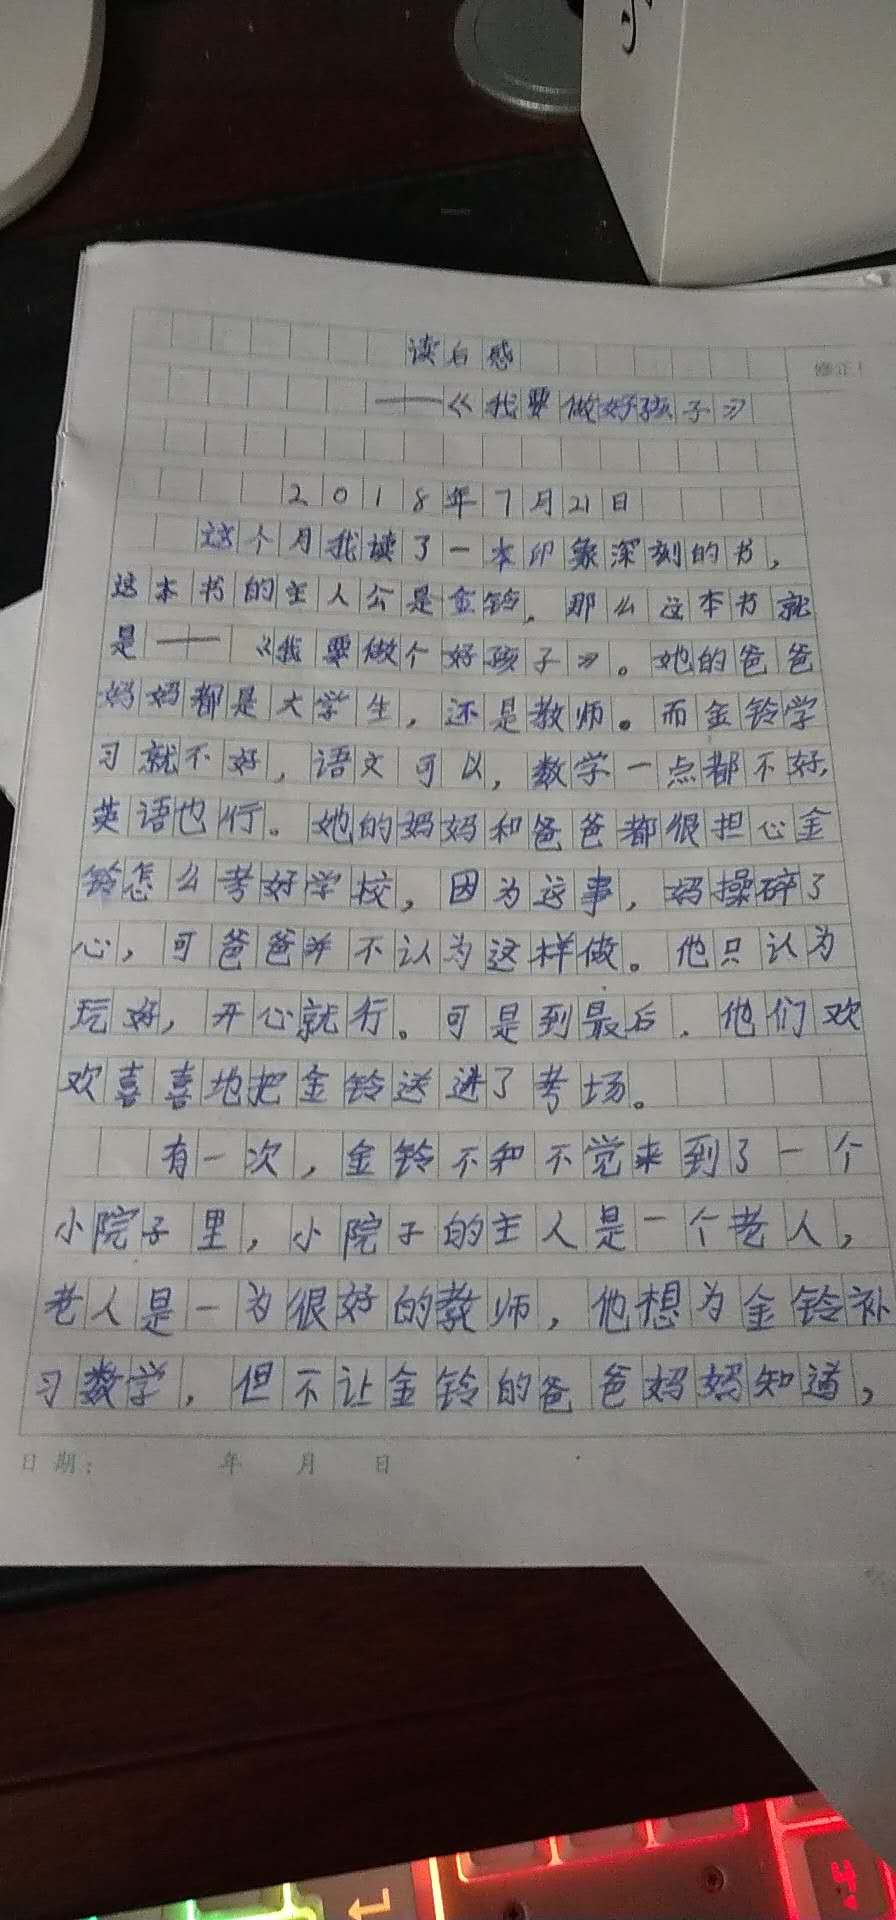 读后感
修正
——《我要做好孩子》
2018年7月21日
这个月我读了一本印象深刻的书，
这本书的主人公是金铃，那么这本书就
是——《我要做个好孩子》。她的爸爸
妈妈都是大学生，还是教师。而金铃学
习就不好，语文可以，数学一点都不好，
英语也行。她的妈妈和爸爸都很担心金
铃怎么考好学校，因为这事，妈操碎了
心，可爸爸并不认为这样做。他只认为
玩好，开心就行。可是到最后，他们欢
欢喜喜地把金铃送进了考场。
有一次，金铃不和不觉来到了一个
小院子里，小院子的主人是一个老人，
老人是一为很好的教师，他想为金铃补
习数学，但不让金铃的爸爸妈妈知道，
日期： 年 月 日